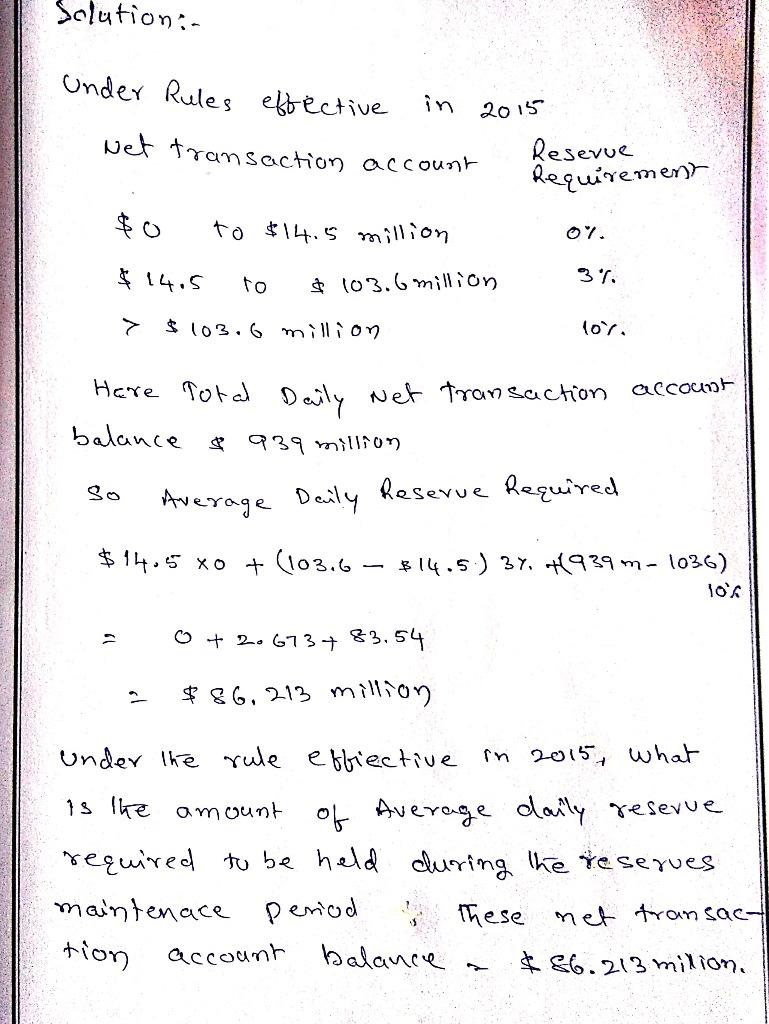 Solution:-
Under Rules effective in 2015
Net transaction account Reserve
Requirement
$0 to $14.5 million 0%.
$14.5 to $103.6 million 3%.
> $103.6 million 10%.
Here Total Daily Net transaction account
balance $ 939 million
So Average Daily Reserve Required
$14.5 x0 + (103.6 - $14.5) 3%. +(939m - 1036)
10%
= 0 + 2.673 + 83.54
= $86.213 million
Under the rule effiective in 2015, what
is the amount of Average daily reserve
required to be held during the reserves
maintenace period ; These net transac-
tion account balance = $86.213 milion.